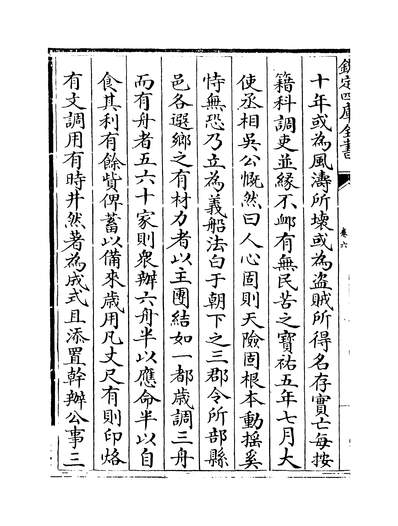 欽定四庫全書
卷六
十年或為風濤所壞或為盜賊所得名存實亡每按
籍科調吏並緣不卹有無民苦之寶祐五年七月大
使丞相吳公慨然曰人心固則天險固根本動搖奚
恃無恐乃立為義船法白于朝下之三郡令所部縣
邑各選鄉之有材力者以主團結如一都歲調三舟
而有舟者五六十家則衆辦六舟半以應命半以自
食其利有餘貲俾蓄以備來歲用凡丈尺有則印烙
有文調用有時井然著為成式且添置幹辦公事三